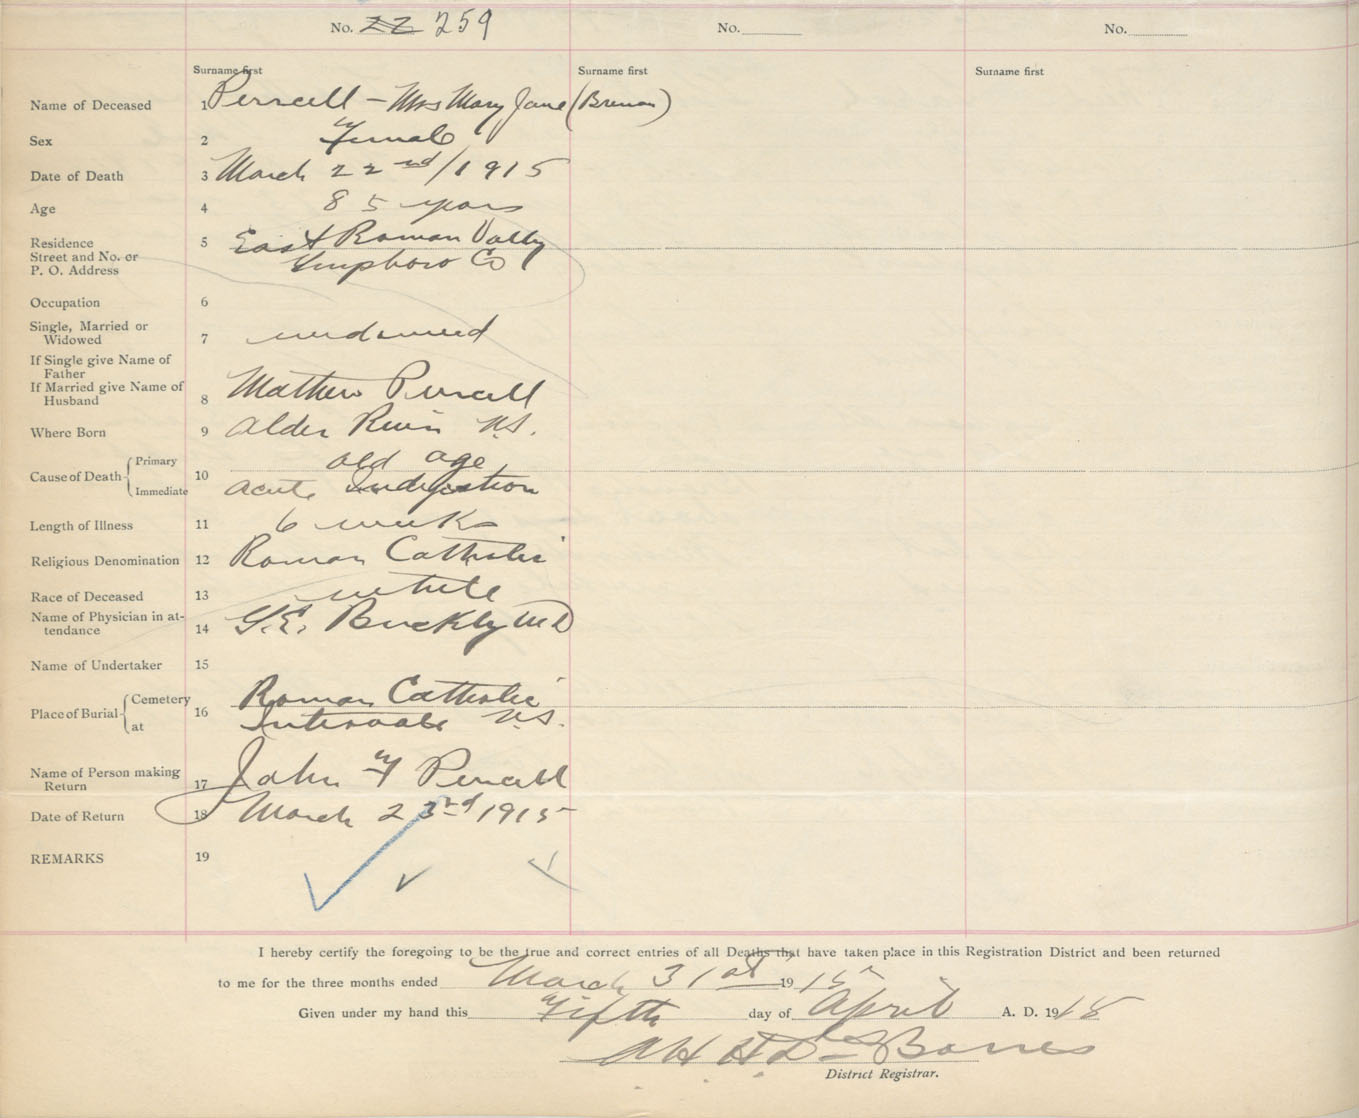 No. 22 259
No.
No.
Surname first
Surname first
Surname first
Name of Deceased 1 Purcell - Mrs Mary Jane (Brenan)
Sex 2 Female
Date of Death 3 March 22nd/1915
Age 4 85 years
Residence
Street and No. or
P. O. Address
5 East Roman Vally
Guysboro Co
Occupation 6
Single, Married or
Widowed 7 widowed
If Single give Name of
Father
If Married give Name of
Husband 8 Mathew Purcell
Where Born 9 Alder River N.S.
Cause of Death 10
Primary old age
Immediate acute Indigestion
Length of Illness 11 6 weeks
Religious Denomination 12 Roman Catholic
Race of Deceased 13 white
Name of Physician in at-
tendance 14 G.E. Buckley MD
Name of Undertaker 15
Place of Burial 16
Cemetery Roman Catholic
at Intervale N.S.
Name of Person making
Return 17 John F Purcell
Date of Return 18 March 23rd 1915
REMARKS 19
I hereby certify the foregoing to be the true and correct entries of all Deaths that have taken place in this Registration District and been returned
to me for the three months ended March 31st 1915
Given under my hand this Fifth day of April A. D. 1915
Des Barres
District Registrar.